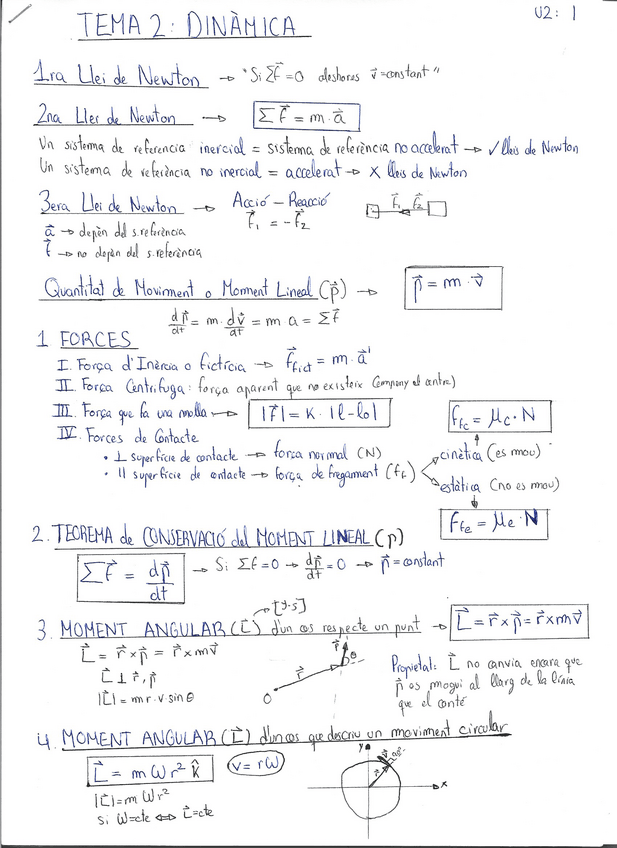 U2: 1
TEMA 2: DINÀMICA
1.ra Llei de Newton → "Si Σf⃗=0 aleshores v⃗=constant"
2na Llei de Newton → Σf⃗ = m·a⃗
Un sistema de referencia inercial = sistema de referència no accelerat → ✓ lleis de Newton
Un sistema de referència no inercial = accelerat → X lleis de Newton
3era Llei de Newton → Acció – Reacció F⃗₁ F⃗₂
a⃗ → depèn del s.referència f⃗₁ = -f⃗₂
f⃗ → no depèn del s.referència
Quantitat de Moviment o Moment Lineal (p⃗) → p⃗ = m·v⃗
dp⃗/dt = m·dv⃗/dt = m a = Σf⃗
1 FORCES
I. Força d'Inèrcia o fictícia → f⃗fict = m·a⃗'
II. Força Centrífuga: força aparent que no existeix (empeny el centre)
III. Força que fa una molla → |f⃗| = K·|l-l₀|
ffc = μc·N
IV. Forces de Contacte
• ⊥ superfície de contacte → força normal (N)
cinètica (es mou)
• || superfície de contacte → força de fregament (ff)
estàtica (no es mou)
ffe = μe·N
2. TEOREMA de CONSERVACIÓ del MOMENT LINEAL (p)
Σf⃗ = dp⃗/dt → Si Σf=0 → dp⃗/dt = 0 → p⃗=constant
→ [J·s]
3. MOMENT ANGULAR (L⃗) d'un cos respecte un punt → L⃗ = r⃗×p⃗ = r⃗×mv⃗
L⃗ = r⃗×p⃗ = r⃗×mv⃗
L⃗ ⊥ r⃗,p⃗
|L⃗| = m r·v·sinθ
O r⃗ θ
Propietat: L⃗ no canvia encara que
p⃗ es mogui al llarg de la línia
que el conté
4. MOMENT ANGULAR (L⃗) d'un cos que descriu un moviment circular
L⃗ = m ω r² k̂ v = rω
|L⃗| = m ω r²
si ω=cte ⇔ L⃗=cte
y v⃗ 90° r⃗ x